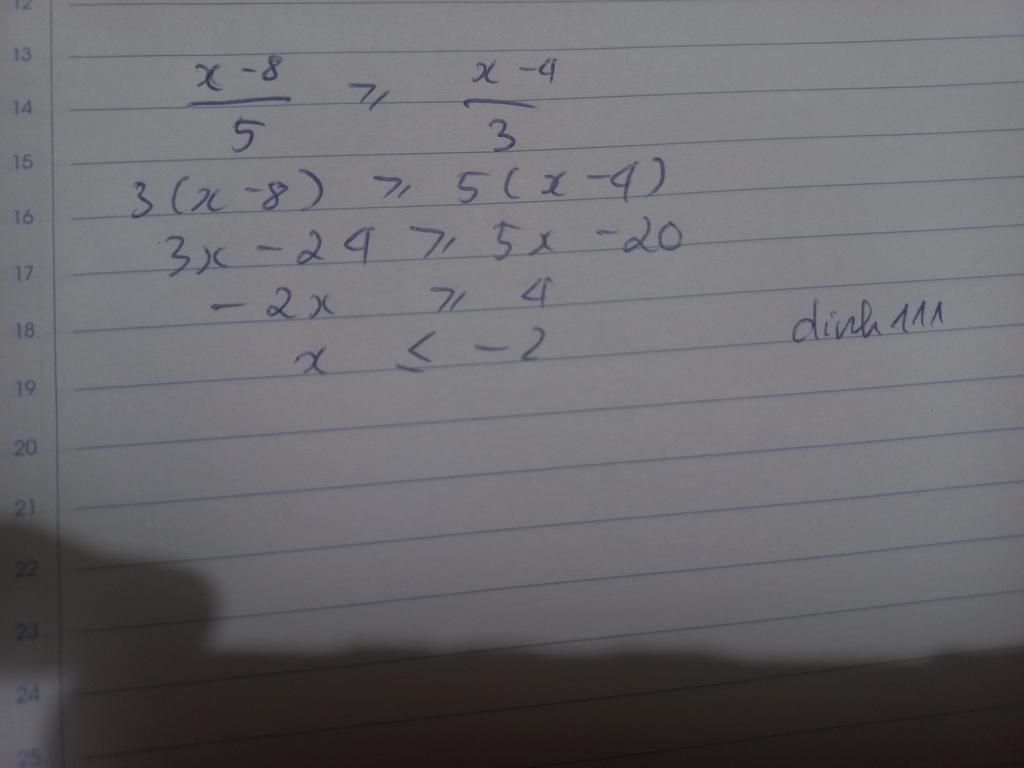 12
13
x - 8 / 5 ⩾ x - 4 / 3
14
15
3(x - 8) ⩾ 5(x - 4)
16
3x - 24 ⩾ 5x - 20
17
- 2x ⩾ 4
18
dinh111
x ≤ - 2
19
20
21
22
23
24
25